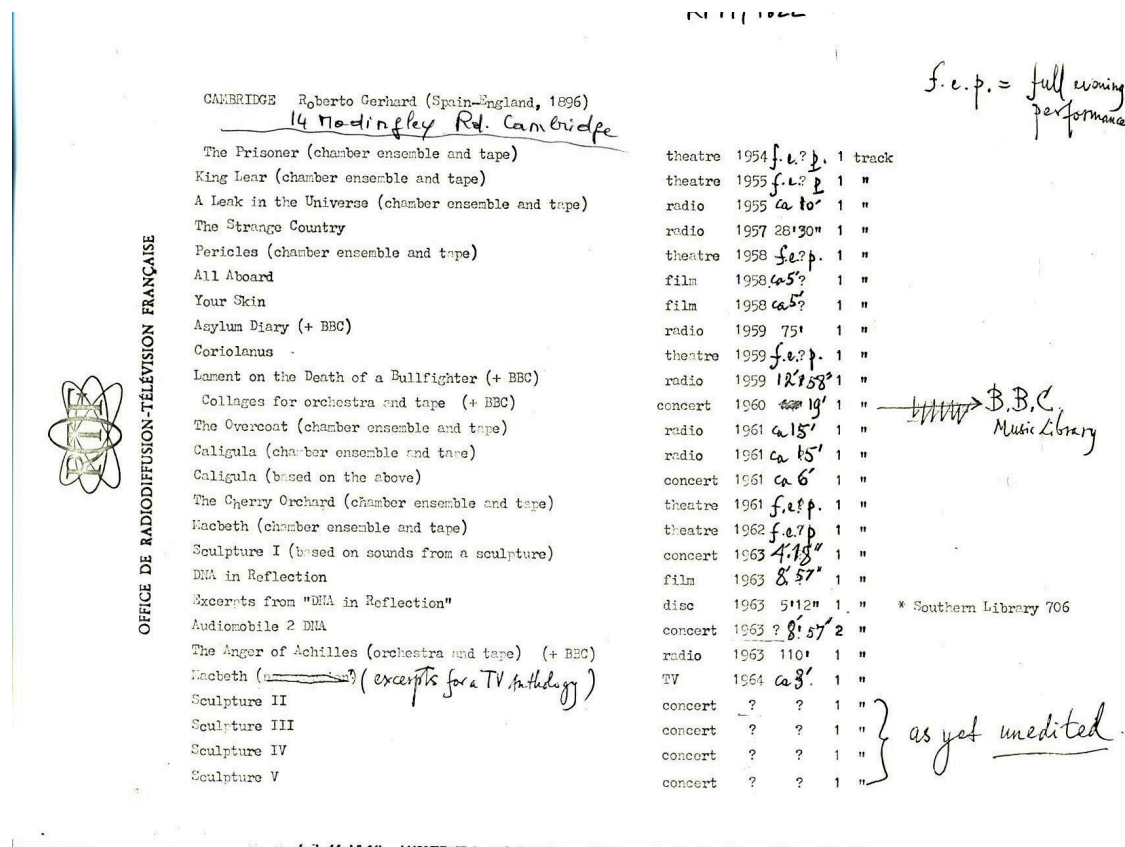 f.e.p. = full evening
performance
CAMBRIDGE Roberto Gerhard (Spain-England, 1896)
14 Madingley Rd. Cambridge
The Prisoner (chamber ensemble and tape) theatre 1954 f.e.?p. 1 track
King Lear (chamber ensemble and tape) theatre 1955 f.e.? p 1 "
A Leak in the Universe (chamber ensemble and tape) radio 1955 ca 10' 1 "
The Strange Country radio 1957 28'30" 1 "
Pericles (chamber ensemble and tape) theatre 1958 f.e?p. 1 "
All Aboard film 1958 ca 5'? 1 "
Your Skin film 1958 ca 5'? 1 "
Asylum Diary (+ BBC) radio 1959 75' 1 "
Coriolanus theatre 1959 f.e.?p. 1 "
Lament on the Death of a Bullfighter (+ BBC) radio 1959 12'58" 1 "
Collages for orchestra and tape (+ BBC) concert 1960 19' 1 " B.B.C.
Music Library
The Overcoat (chamber ensemble and tape) radio 1961 ca 15' 1 "
Caligula (chamber ensemble and tape) radio 1961 ca 15' 1 "
Caligula (based on the above) concert 1961 ca 6' 1 "
The Cherry Orchard (chamber ensemble and tape) theatre 1961 f.e?p. 1 "
Macbeth (chamber ensemble and tape) theatre 1962 f.e?p 1 "
Sculpture I (based on sounds from a sculpture) concert 1963 4'18" 1 "
DNA in Reflection film 1963 8'57" 1 "
Excerpts from "DNA in Reflection" disc 1963 5'12" 1 " * Southern Library 706
Audiomobile 2 DNA concert 1963 ? 8'57" 2 "
The Anger of Achilles (orchestra and tape) (+ BBC) radio 1963 110' 1 "
Macbeth (excerpts for a TV Anthology) TV 1964 ca 3'. 1 "
Sculpture II concert ? ? 1 "
Sculpture III concert ? ? 1 " as yet unedited.
Sculpture IV concert ? ? 1 "
Sculpture V concert ? ? 1 "
OFFICE DE RADIODIFFUSION-TÉLÉVISION FRANÇAISE